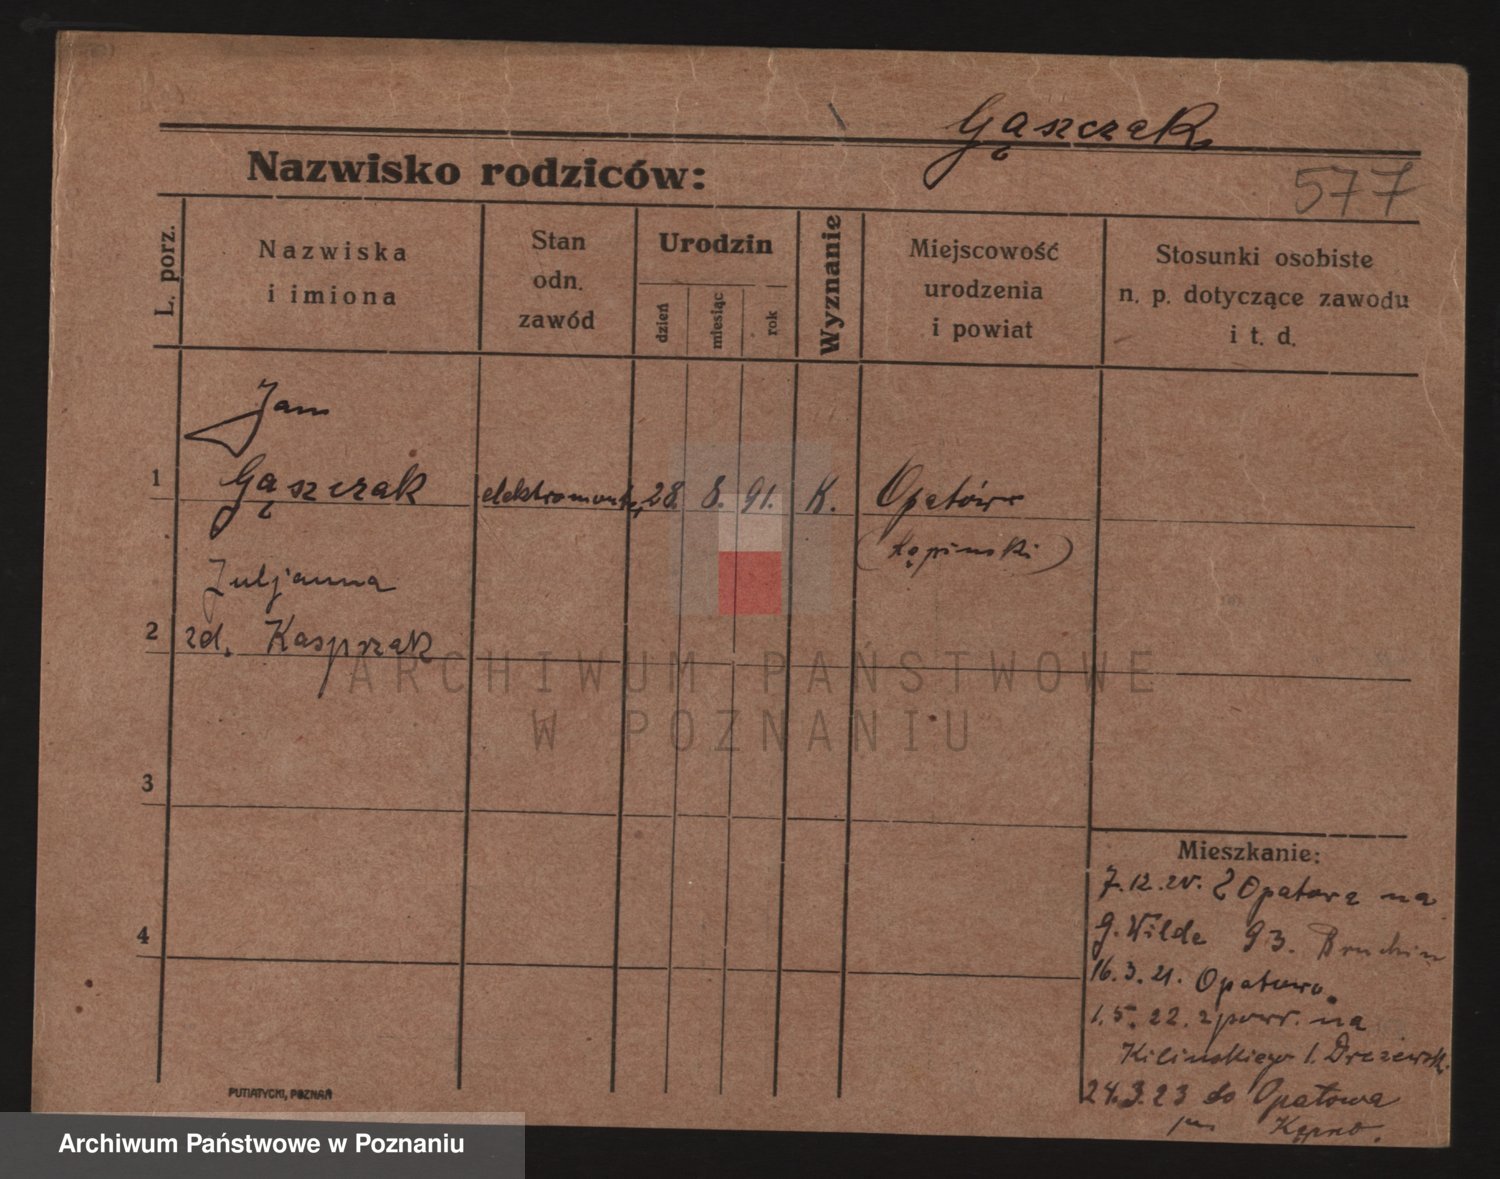 Gąszczak
Nazwisko rodziców:
577
L. porz.
Nazwiska
i imiona
Stan
odn.
zawód
Urodzin
dzień
miesiąc
rok
Wyznanie
Miejscowość
urodzenia
i powiat
Stosunki osobiste
n. p. dotyczące zawodu
i t. d.
Jan
1 Gąszczak elektromonter 28. 8. 91. K. Opatów
(Kępinski)
Juljanna
2 zd. Kasprzak
ARCHIWUM PAŃSTWOWE
W POZNANIU
3
Mieszkanie:
7.12.20. z Opatowa na
4
G. Wilde 93.
16.3.21. Opatowo.
1.5.22. z powr. na
Kilinskiego 1.
24.3.23 do Opatowa
Kępno.
PUTIATYCKI, POZNAŃ
Archiwum Państwowe w Poznaniu